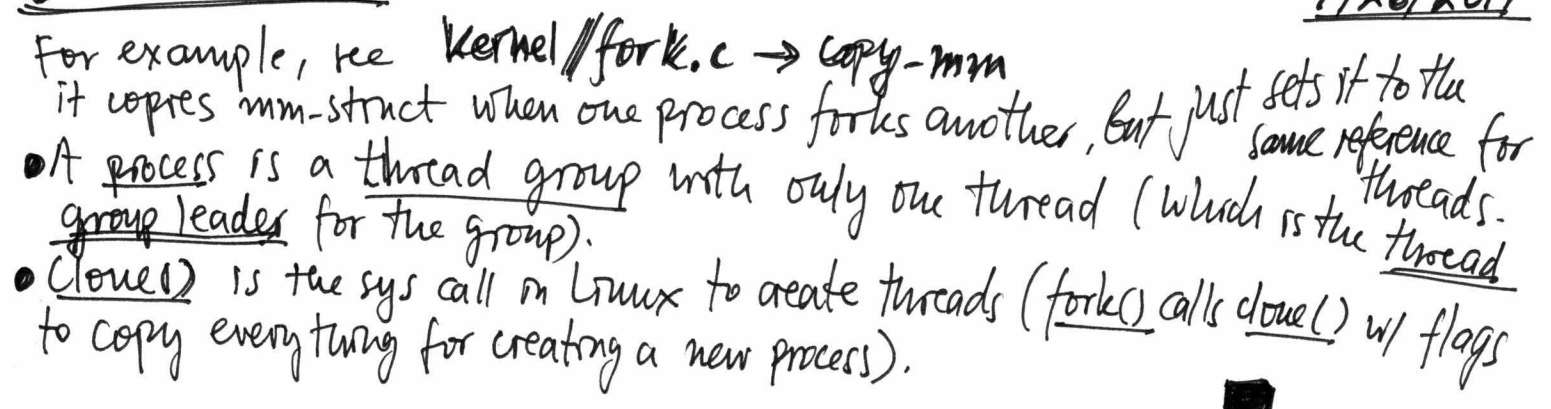 For example, see kernel/fork.c → copy-mm
it copies mm-struct when one process forks another, but just sets it to the same reference for threads.
• A process is a thread group with only one thread (which is the thread
group leader for the group).
• Clone() is the sys call in Linux to create threads (fork() calls clone() w/ flags
to copy everything for creating a new process).